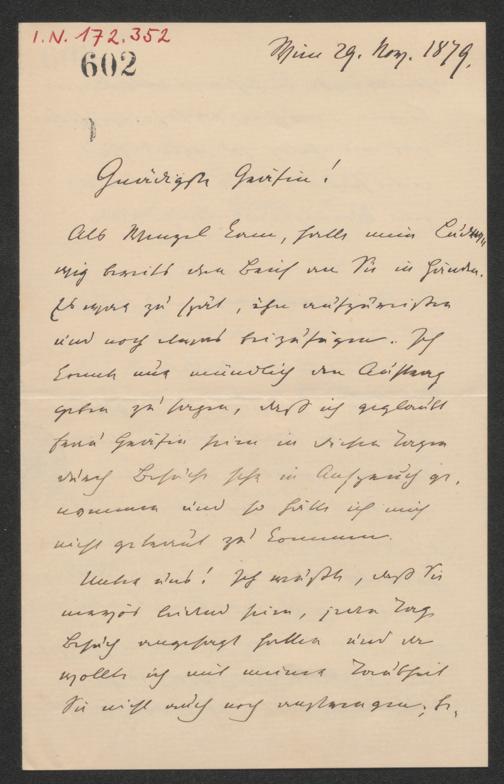 I.N. 172.352
602
Wien 29. Nov. 1879.
Gnädigste Gräfin!
Als Wenzel kam, hatte mein Ludwig
bereits den Brief an Sie in Händen.
Es war zu spät, ihn aufzureißen
und noch etwas beizufügen. Ich
konnte nur mündlich den Auftrag
geben zu sagen, daß ich geglaubt
Frau Gräfin seien in diesen Tagen
durch Besuche sehr in Anspruch ge-
nommen und so hätte ich mich
nicht getraut zu kommen.
Unter uns! Ich wußte, daß Sie
nervös leidend seien, jeden Tag
Besuch angesagt hatten und da
wollte ich mit meiner Taubheit
Sie nicht auch noch anstrengen; be-